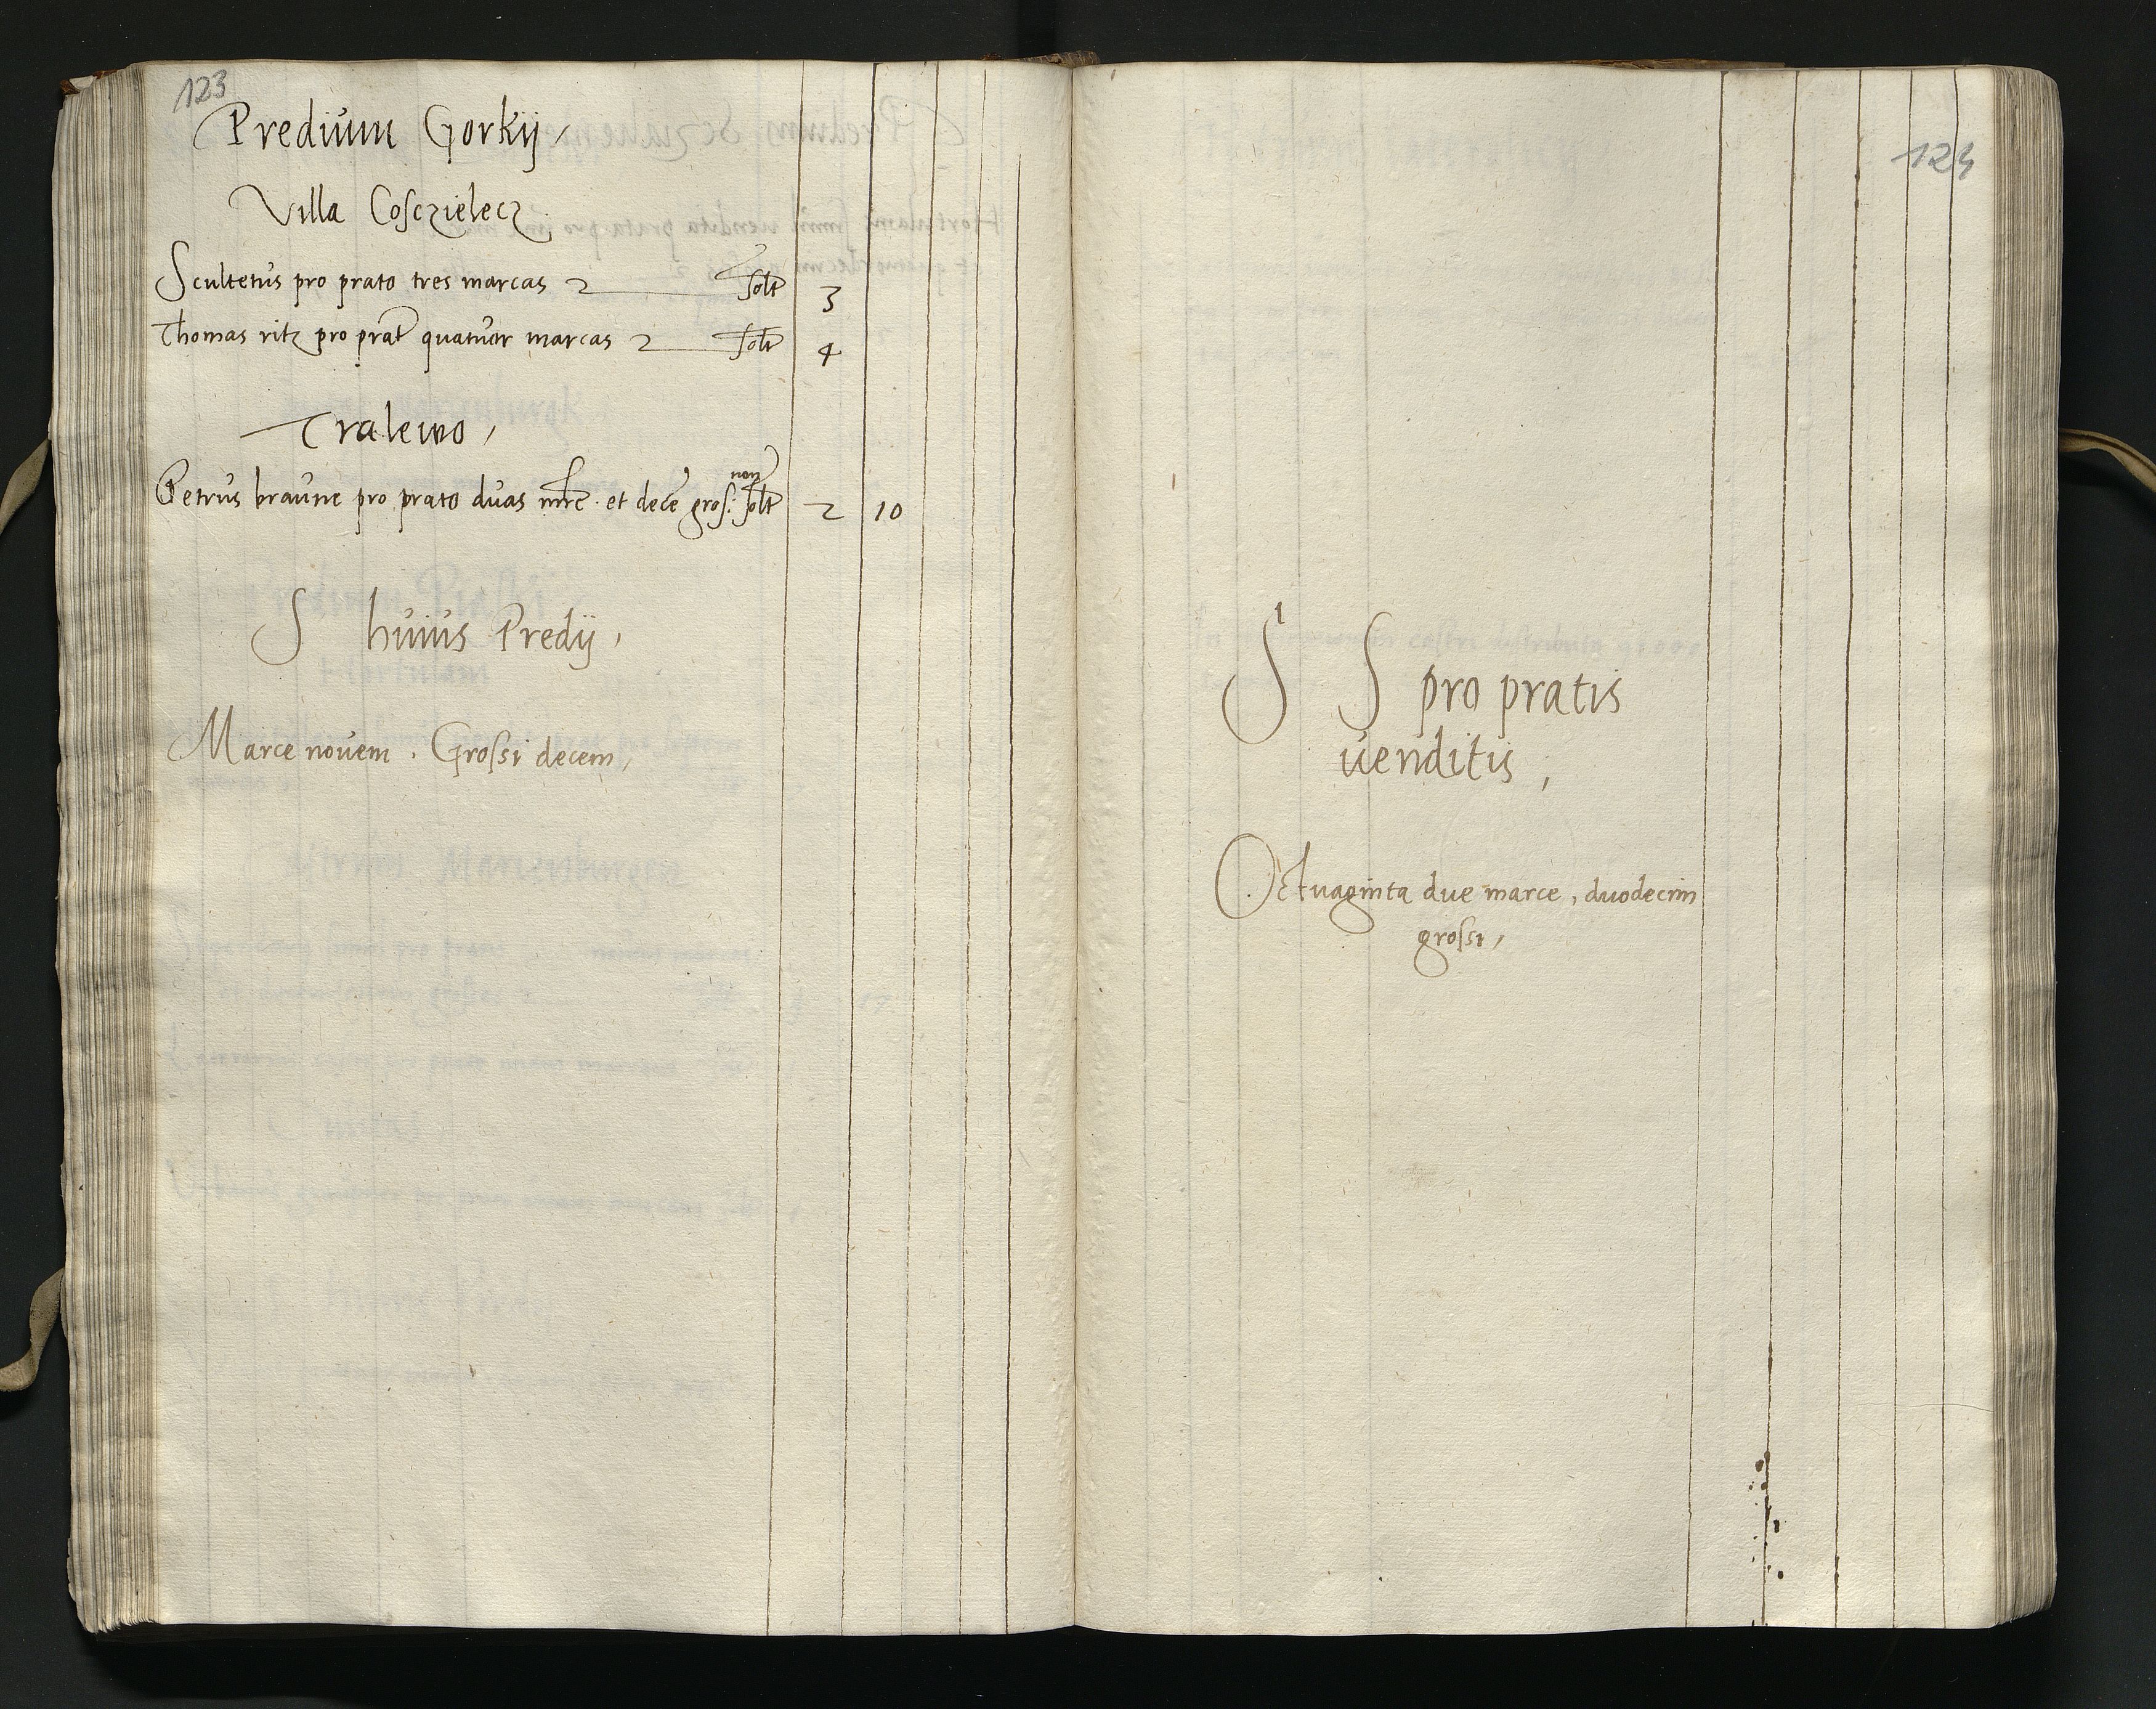 123
Predium Gorkij,
Villa Cosczielecz.
Scultetus pro prato tres marcas 2 solt 3
Thomas ritz pro prat quatuor marcas 2 solt 4
Tralewo,
non
Petrus braune pro prato duas mrc. et dece gros: solt 2 10
S huius Predij,
Marce novem. Grossi decem,
124
S S pro pratis
venditis,
Octuaginta due marce, duodecim
grossi,